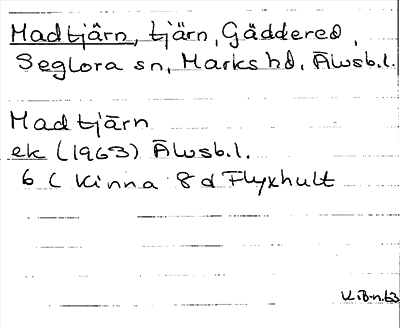 Madtjärn, tjärn, Gäddered,
Seglora sn, Marks hd, Älvsb.l.
Madtjärn
ek (1963) Älvsb.l.
6 C Kinna 8 d Flyxhult